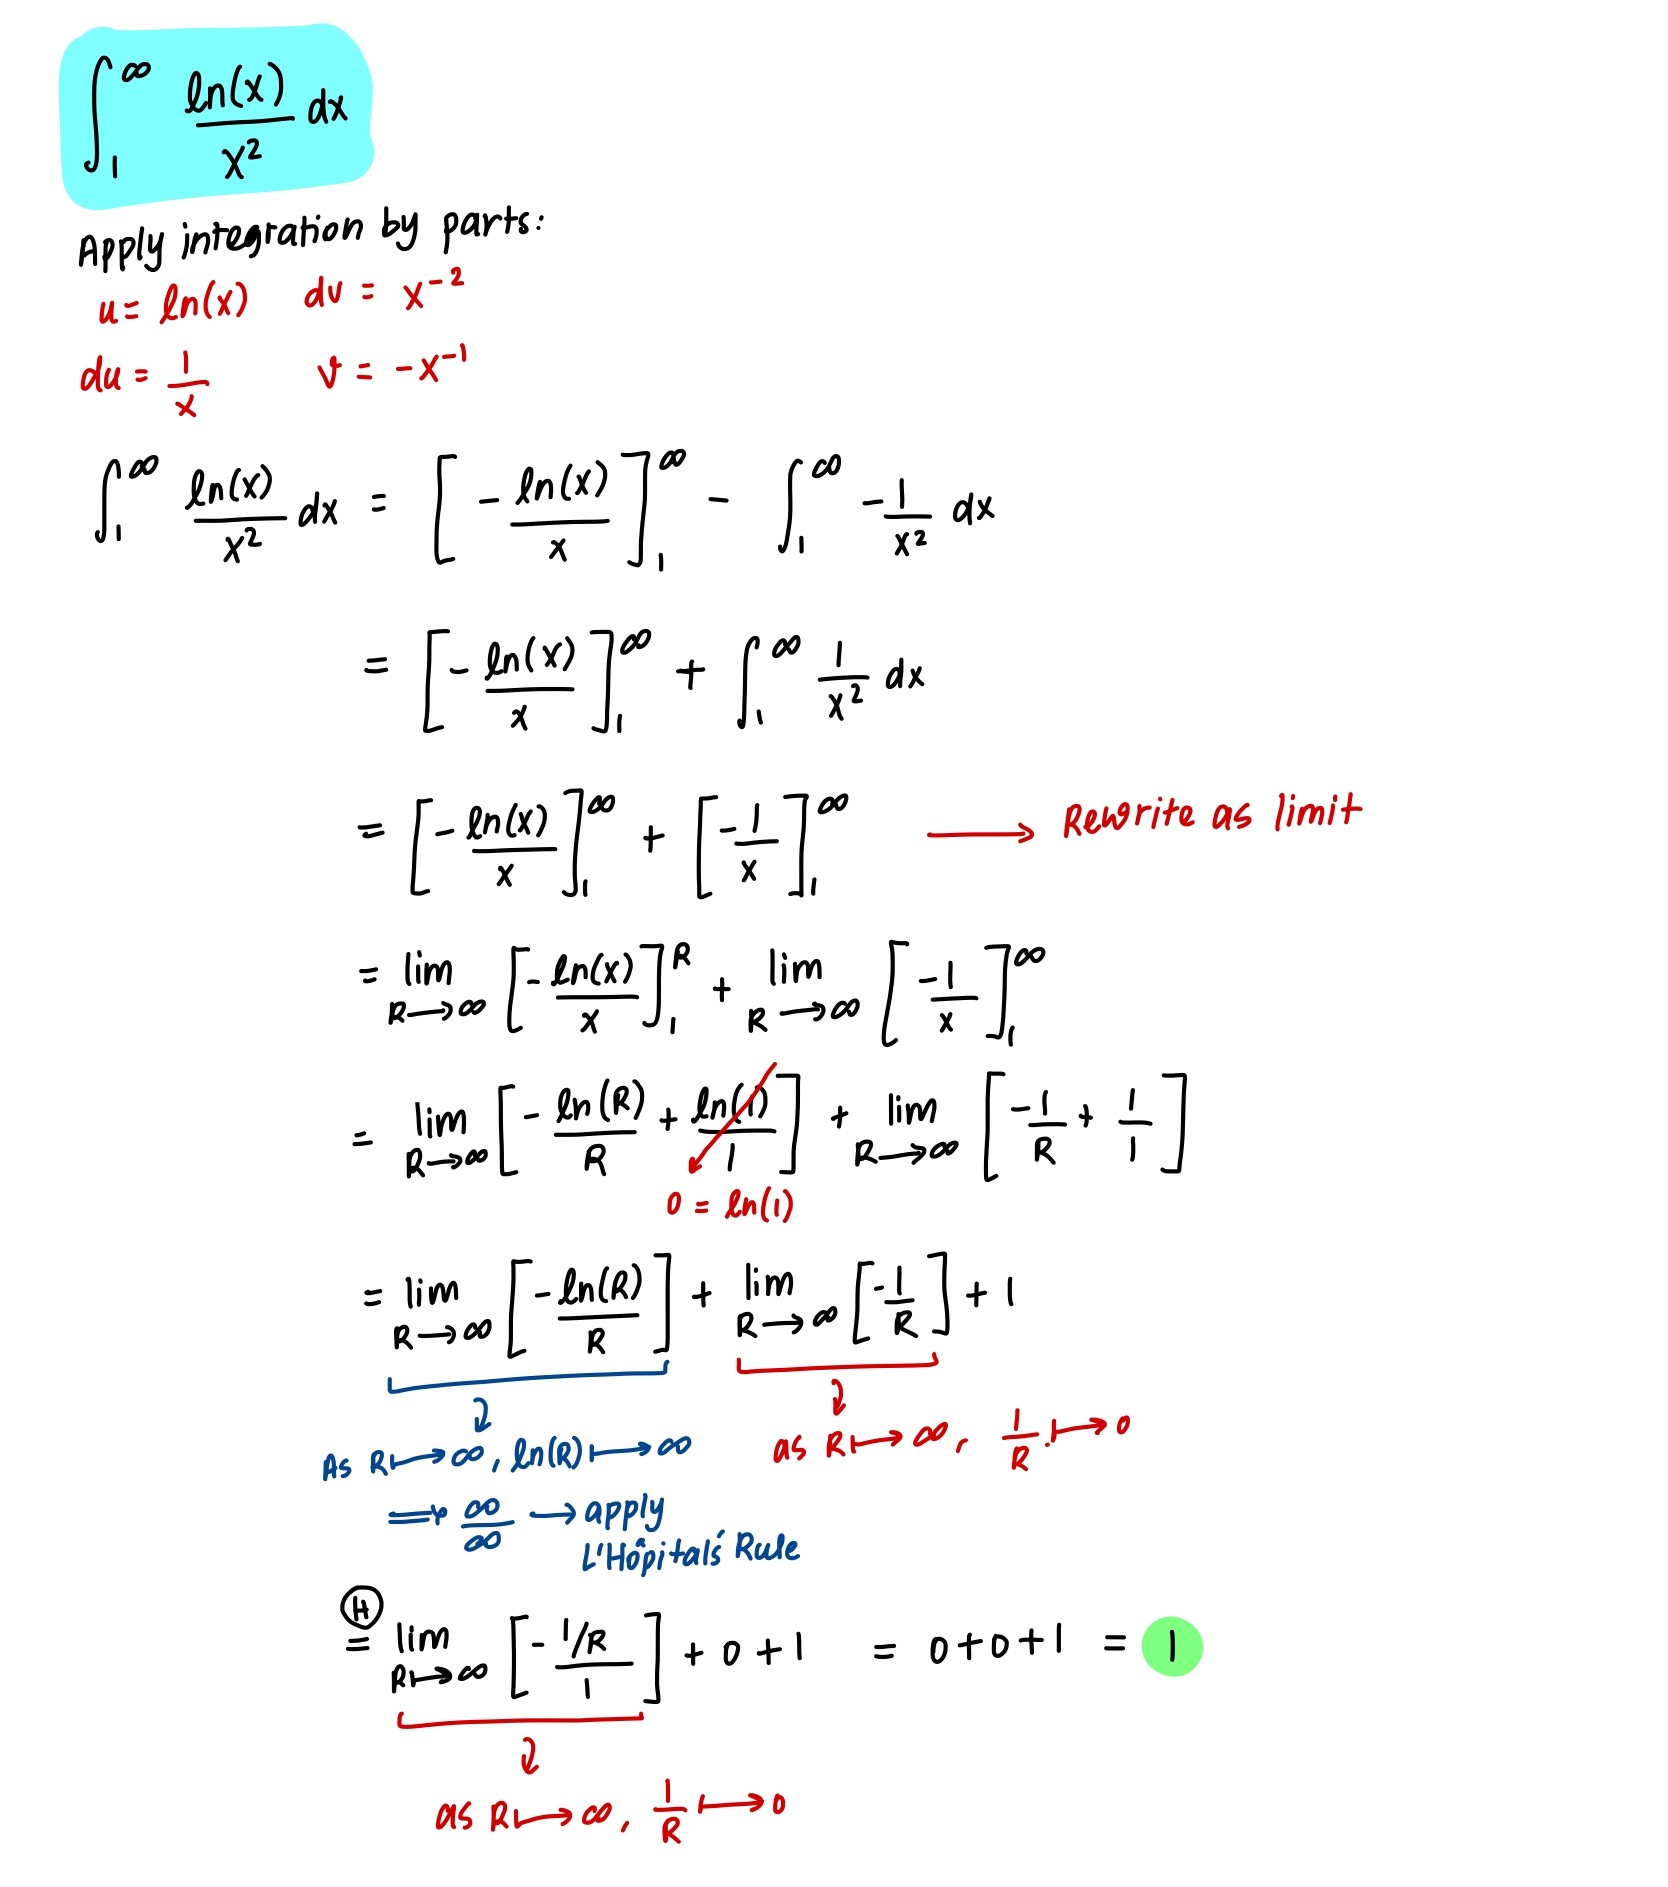 ∫₁^∞ ln(x)/x² dx
Apply integration by parts:
u = ln(x)    dv = x⁻²
du = 1/x    v = -x⁻¹
∫₁^∞ ln(x)/x² dx = [ - ln(x)/x ]₁^∞ - ∫₁^∞ -1/x² dx
= [ - ln(x)/x ]₁^∞ + ∫₁^∞ 1/x² dx
= [ - ln(x)/x ]₁^∞ + [ -1/x ]₁^∞ ⟶ Rewrite as limit
= lim R→∞ [ - ln(x)/x ]₁^R + lim R→∞ [ -1/x ]₁^∞
= lim R→∞ [ - ln(R)/R + ln(1)/1 ] + lim R→∞ [ -1/R + 1/1 ]
0 = ln(1)
= lim R→∞ [ - ln(R)/R ] + lim R→∞ [ -1/R ] + 1
As R↦∞, ln(R)↦∞    as R↦∞, 1/R ↦ 0
⟹ ∞/∞ → apply
L'Hôpital's Rule
(H)
= lim R↦∞ [ - 1/R / 1 ] + 0 + 1 = 0 + 0 + 1 = 1
as R↦∞, 1/R ↦ 0